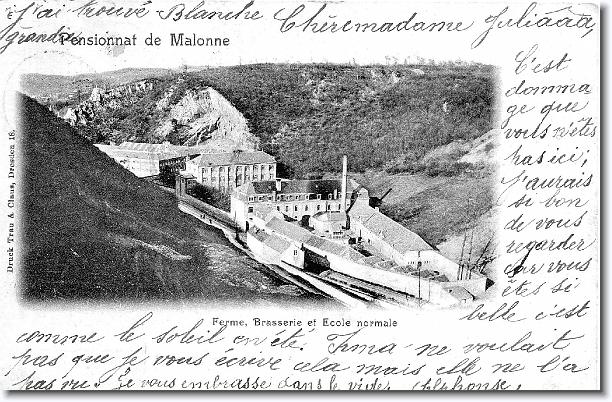 J'ai trouvé Blanche Chère madame Juliāāā,
grandie.
Pensionnat de Malonne
C'est
domma
ge que
vous n'êtes
pas ici;
j'aurais
si bon
de vous
regarder
car vous
êtes si
belle c'est
Druck Trau & Claus, Dresden 18.
Ferme, Brasserie et Ecole normale
comme le soleil en été. Irma ne voulait
pas que je vous écrive cela mais elle ne l'a
pas vu. Je vous embrasse dans le vide, Alphonse,